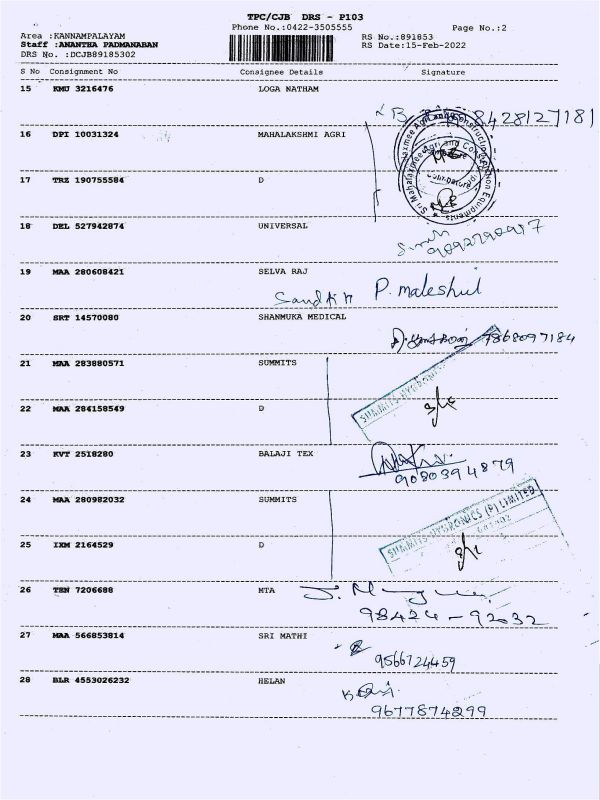 TPC/CJB DRS - P103
Phone No.:0422-3505555 Page No.:2
Area :KANNAMPALAYAM RS No.:891853
Staff :ANANTHA PADMANABAN RS Date:15-Feb-2022
DRS No. :DCJB89185302
S No Consignment No Consignee Details Signature
15 KMU 3216476 LOGA NATHAM
8428127181
16 DPI 10031324 MAHALAKSHMI AGRI
17 TRZ 190755584 D
18 DEL 527942874 UNIVERSAL
19 MAA 280608421 SELVA RAJ
P. maleshul
20 SRT 14570080 SHANMUKA MEDICAL
7868097184
21 MAA 283880571 SUMMITS
SUMMITS HYGRONICS
22 MAA 284158549 D
23 KVT 2518280 BALAJI TEX
9080394879
24 MAA 280982032 SUMMITS
SUMMITS HYGRONICS (P) LIMITED
25 IXM 2164529 D
26 TEN 7206688 MTA
98424-92032
27 MAA 566853814 SRI MATHI
9566724459
28 BLR 4553026232 HELAN
9677874899